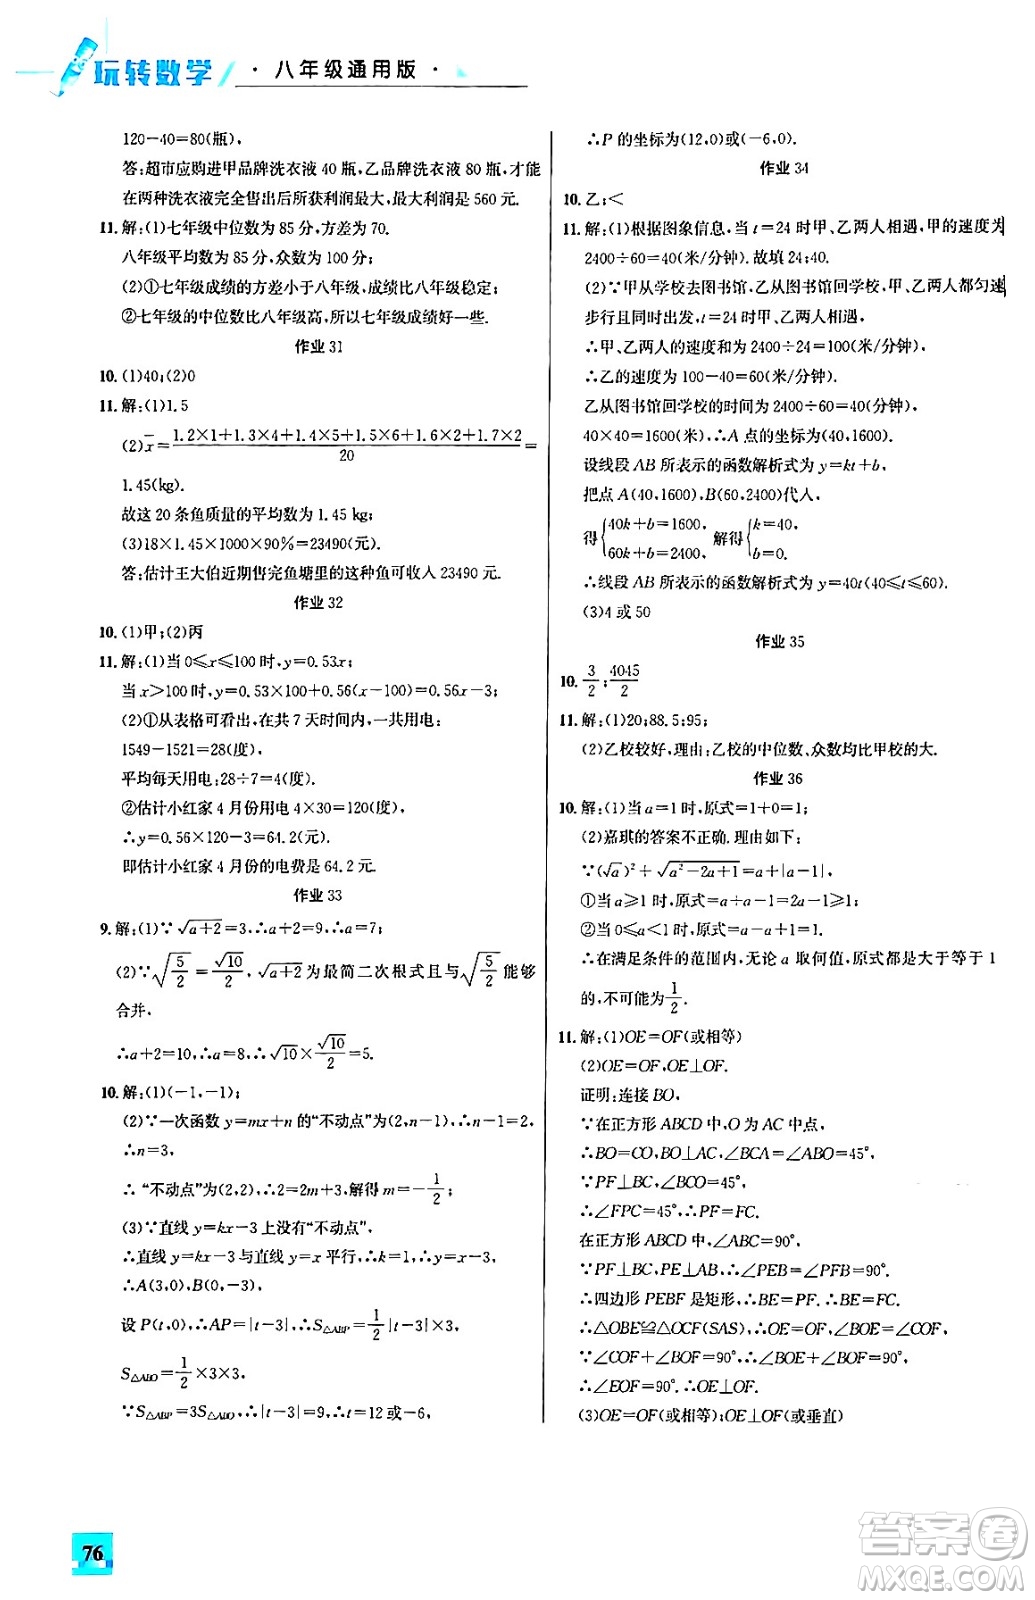 玩转数学
·八年级通用版·
120-40=80(瓶),
答:超市应购进甲品牌洗衣液 40 瓶,乙品牌洗衣液 80 瓶,才能
在两种洗衣液完全售出后所获利润最大,最大利润是 560 元.
11. 解:(1)七年级中位数为 85 分,方差为 70.
八年级平均数为 85 分,众数为 100 分;
(2)①七年级成绩的方差小于八年级,成绩比八年级稳定;
②七年级的中位数比八年级高,所以七年级成绩好一些.
作业 31
10. (1)40;(2)0
11. 解:(1)1.5
(2)x̄=(1.2×1+1.3×4+1.4×5+1.5×6+1.6×2+1.7×2)/20=
1.45(kg).
故这 20 条鱼质量的平均数为 1.45 kg;
(3)18×1.45×1000×90%=23490(元).
答:估计王大伯近期售完鱼塘里的这种鱼可收入 23490 元.
作业 32
10. (1)甲;(2)丙
11. 解:(1)当 0⩽x⩽100 时,y=0.53x;
当 x>100 时,y=0.53×100+0.56(x-100)=0.56x-3;
(2)①从表格可看出,在共 7 天时间内,一共用电:
1549-1521=28(度),
平均每天用电:28÷7=4(度);
②估计小红家 4 月份用电 4×30=120(度),
∴y=0.56×120-3=64.2(元).
即估计小红家 4 月份的电费是 64.2 元.
作业 33
9. 解:(1)∵√(a+2)=3,∴a+2=9,∴a=7;
(2)∵√(5/2)=√10/2,√(a+2)为最简二次根式且与√(5/2)能够
合并,
∴a+2=10,∴a=8,∴√10×√10/2=5.
10. 解:(1)(-1,-1);
(2)∵一次函数 y=mx+n 的“不动点”为(2,n-1),∴n-1=2,
∴n=3,
∴“不动点”为(2,2),∴2=2m+3,解得 m=-1/2;
(3)∵直线 y=kx-3 上没有“不动点”,
∴直线 y=kx-3 与直线 y=x 平行,∴k=1,∴y=x-3,
∴A(3,0),B(0,-3),
设 P(t,0),∴AP=|t-3|,∴S△ABP=1/2|t-3|×3,
S△ABO=1/2×3×3,
∵S△ABP=3S△ABO,∴|t-3|=9,∴t=12 或-6,
∴P 的坐标为(12,0)或(-6,0).
作业 34
10. 乙;<
11. 解:(1)根据图象信息,当 t=24 时甲、乙两人相遇,甲的速度为
2400÷60=40(米/分钟).故填 24;40.
(2)∵甲从学校去图书馆,乙从图书馆回学校,甲、乙两人都匀速
步行且同时出发,t=24 时甲、乙两人相遇,
∴甲、乙两人的速度和为 2400÷24=100(米/分钟),
∴乙的速度为 100-40=60(米/分钟).
乙从图书馆回学校的时间为 2400÷60=40(分钟),
40×40=1600(米),∴A 点的坐标为(40,1600).
设线段 AB 所表示的函数解析式为 y=kt+b,
把点 A(40,1600),B(60,2400)代入,
得{40k+b=1600, 60k+b=2400, 解得{k=40, b=0.
∴线段 AB 所表示的函数解析式为 y=40t(40⩽t⩽60).
(3)4 或 50
作业 35
10. 3/2;4045/2
11. 解:(1)20;88.5;95;
(2)乙校较好,理由:乙校的中位数、众数均比甲校的大.
作业 36
10. 解:(1)当 a=1 时,原式=1+0=1;
(2)嘉琪的答案不正确.理由如下:
∵(√a)²+√(a²-2a+1)=a+|a-1|,
①当 a⩾1 时,原式=a+a-1=2a-1⩾1;
②当 0⩽a<1 时,原式=a-a+1=1.
∴在满足条件的范围内,无论 a 取何值,原式都是大于等于 1
的,不可能为1/2.
11. 解:(1)OE=OF(或相等)
(2)OE=OF,OE⊥OF.
证明:连接 BO,
∵在正方形 ABCD 中,O 为 AC 中点,
∴BO=CO,BO⊥AC,∠BCA=∠ABO=45°,
∵PF⊥BC,∠BCO=45°,
∴∠FPC=45°,∴PF=FC.
在正方形 ABCD 中,∠ABC=90°,
∵PF⊥BC,PE⊥AB,∴∠PEB=∠PFB=90°.
∴四边形 PEBF 是矩形,∴BE=PF.∴BE=FC.
∴△OBE≌△OCF(SAS),∴OE=OF,∠BOE=∠COF,
∵∠COF+∠BOF=90°,∴∠BOE+∠BOF=90°,
∴∠EOF=90°.∴OE⊥OF.
(3)OE=OF(或相等);OE⊥OF(或垂直)
76
答案圈
MXQE.COM